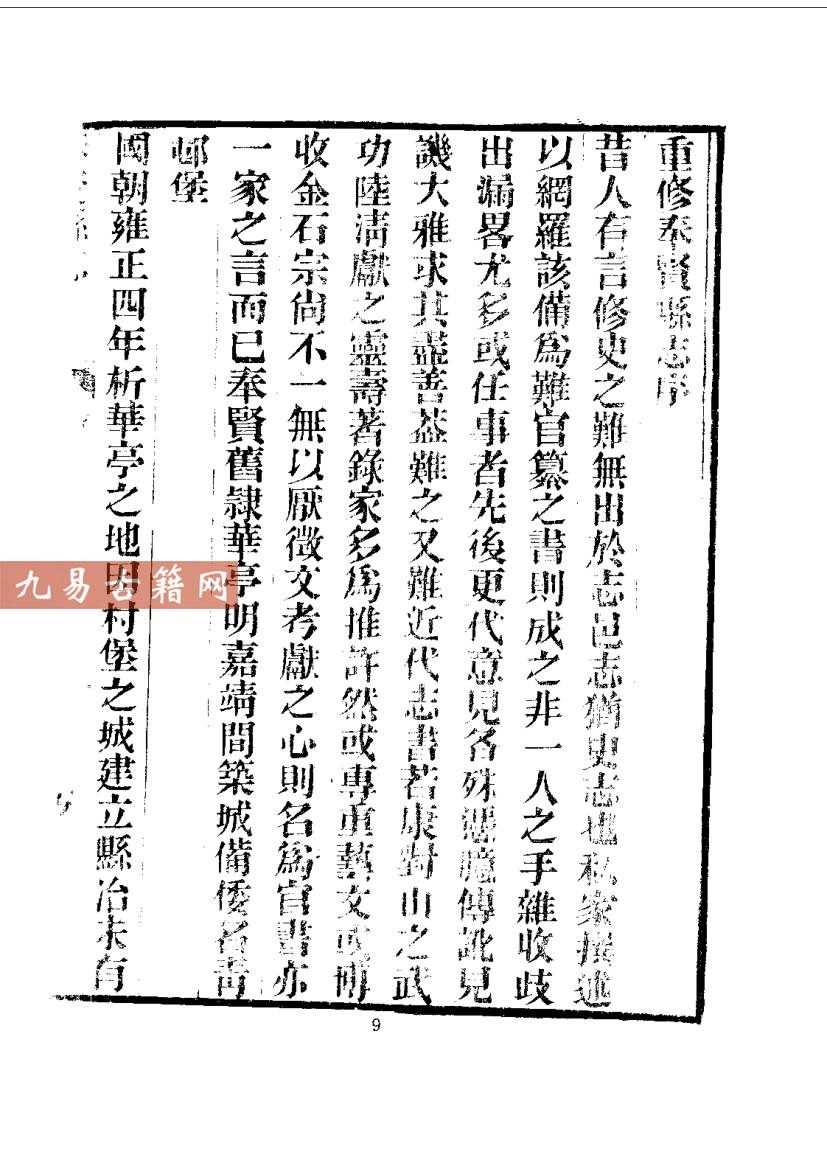 重修奉賢縣志序
昔人有言修史之難無出於志邑志猶史志也私家撰述
以網羅該備爲難官纂之書則成之非一人之手雜收歧
出漏畧尤多或任事者先後更代意見各殊憑臆傳訛見
譏大雅求其盡善葢難之又難近代志書若康對山之武
功陸清獻之靈壽著錄家多爲推許然或專重藝文或明
收金石宗尚不一無以厭徵文考獻之心則名爲官書亦
一家之言而已奉賢舊隷華亭明嘉靖間築城備倭名靑
邨堡
國朝雍正四年析華亭之地因村堡之城建立縣治未有
九易古籍网
9